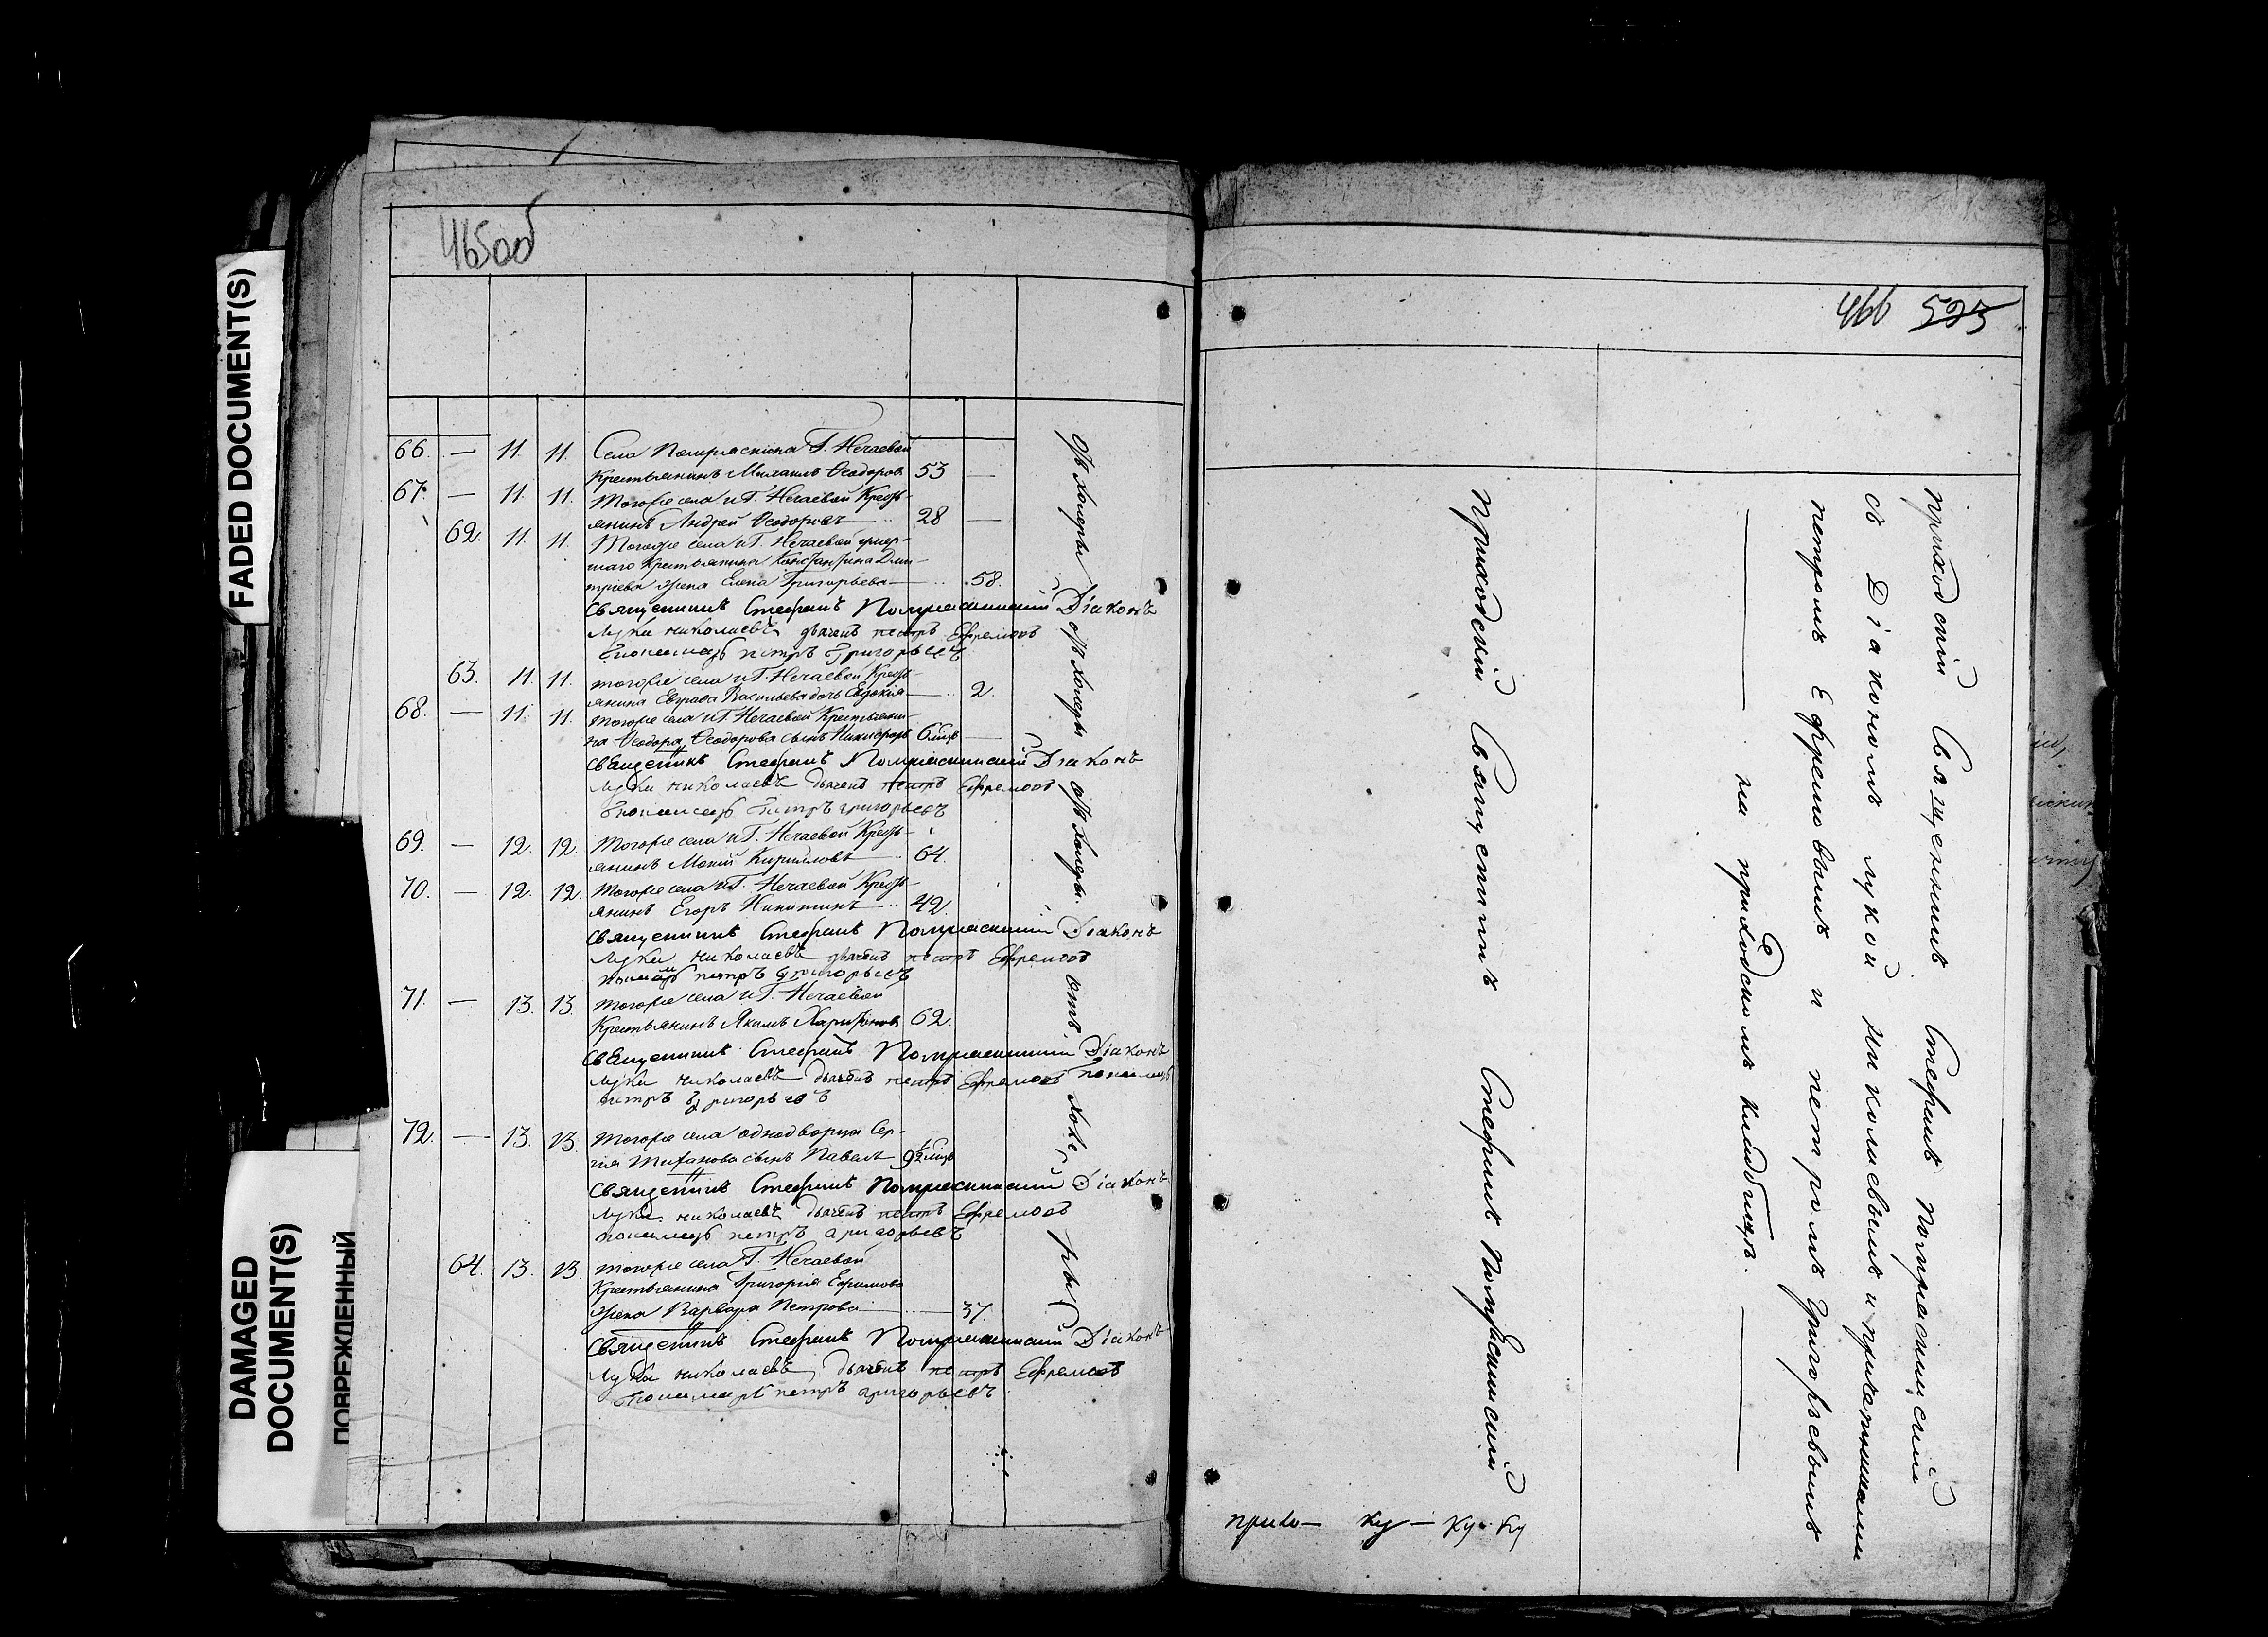 FADED DOCUMENT(S)
DAMAGED
DOCUMENT(S)
ПОВРЕЖДЕННЫЙ
465об
66. — 11. 11. Села Потряскина Г. Нечаевой
Крестьянинъ Михаилъ Ѳеодоровъ 53 —
67. — 11. 11. Тогоже села и Г. Нечаевой Крест-
янинъ Андрей Ѳеодоровъ — 28 —
62. 11. 11. Тогоже села и Г. Нечаевой умер-
шаго Крестьянина Константина Дми-
тріева жена Елена Григорьева — 58.
Священникъ Стефанъ Потряскинскій Діаконъ
Лука Николаевъ дьячекъ петръ Ефремовъ
Пономарь петръ Григорьевъ
63. 11. 11. Тогоже села и Г. Нечаевой Крест-
янина Евграфа Васильева дочь Евдокія — 2.
68. — 11. 11. Тогоже села и Г. Нечаевой Крестьяни-
на Ѳеодора Ѳеодорова сынъ Никифоръ 6 мцъ —
Священникъ Стефанъ Потряскинскій Діаконъ
Лука Николаевъ дьячекъ петръ Ефремовъ
Пономарь Петръ григорьевъ
69. — 12. 12. Тогоже села и Г. Нечаевой Крест-
янинъ Мокій Кирилловъ 64.
70. — 12. 12. Тогоже села и Г. Нечаевой Крест-
янинъ Егоръ Никитинъ 42.
Священникъ Стефанъ Потряскинскій Діаконъ
Лука Николаевъ дьячекъ петръ Ефремовъ
Пономарь петръ Григорьевъ
71. — 13. 13. Тогоже села и Г. Нечаевой
Крестьянинъ Якимъ Харитоновъ 62.
Священникъ Стефанъ Потряскинскій Діаконъ
Лука Николаевъ дьячекъ петръ Ефремовъ пономарь
петръ Григорьевъ
72. — 13. 13. Тогоже села однодворца Сер-
гія сынъ Павелъ
Священникъ Стефанъ Потряскинскій Діаконъ
Лука Николаевъ дьячекъ петръ Ефремовъ
пономарь петръ григорьевъ
64. 13. 13. Тогоже села Г. Нечаевой
Крестьянина Григорія Ефимова
жена Варвара Петрова — 37.
Священникъ Стефанъ Потряскинскій Діаконъ
Лука Николаевъ, дьячекъ петръ Ефремовъ
Пономарь петръ григорьевъ
отъ холеры
отъ холеры
отъ холеры.
отъ холе-
ры
466 523
приходскій Священникъ Стефанъ Потряскинскій
съ Діакономъ лукой николаевымъ и причетниками
петромъ Ефремовымъ и петромъ григорьевымъ
— на приходскомъ кладбищѣ. —
приходскій Священникъ Стефанъ Потряскинскій